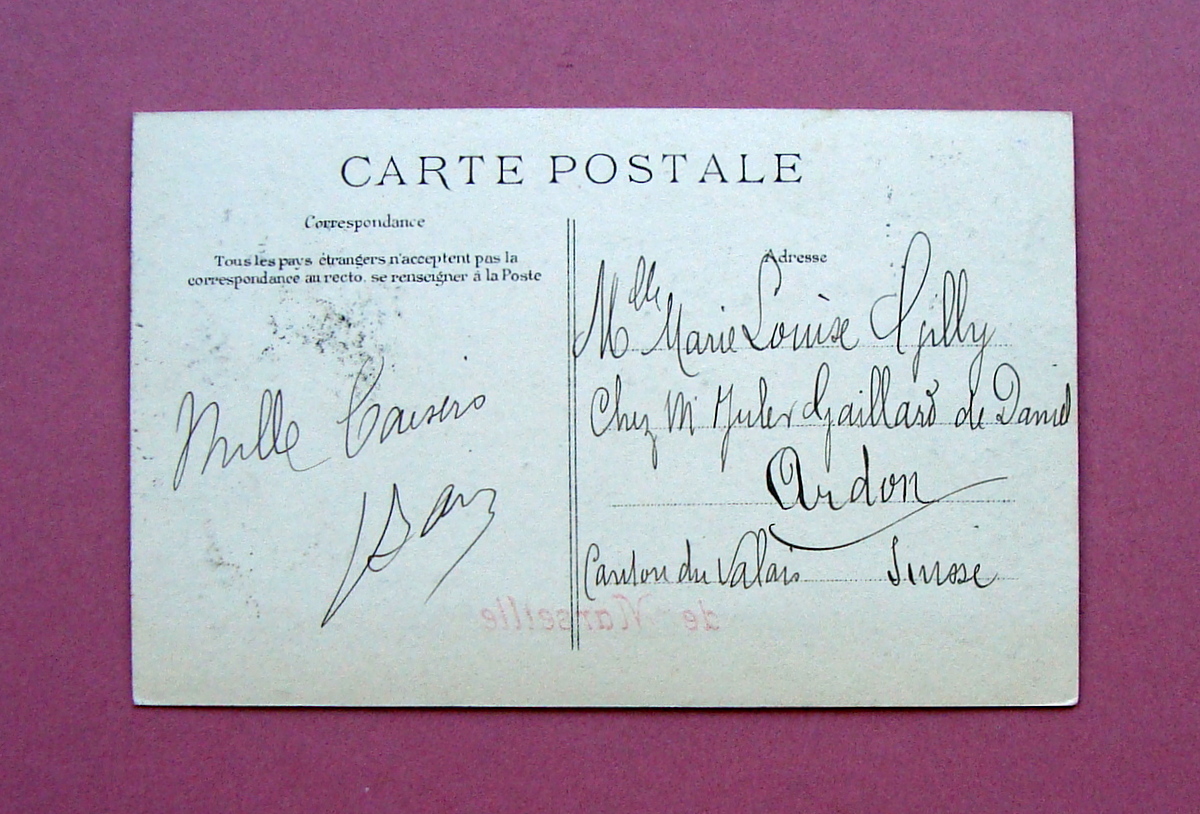 CARTE POSTALE
Correspondance
Tous les pays étrangers n'acceptent pas la
correspondance au recto, se renseigner à la Poste
Mille Baisers
Adresse
Mlle Marie Louise Gilly
Chez M Jules Gaillard de Daniel
Ardon
Canton du Valais Suisse
de Marseille